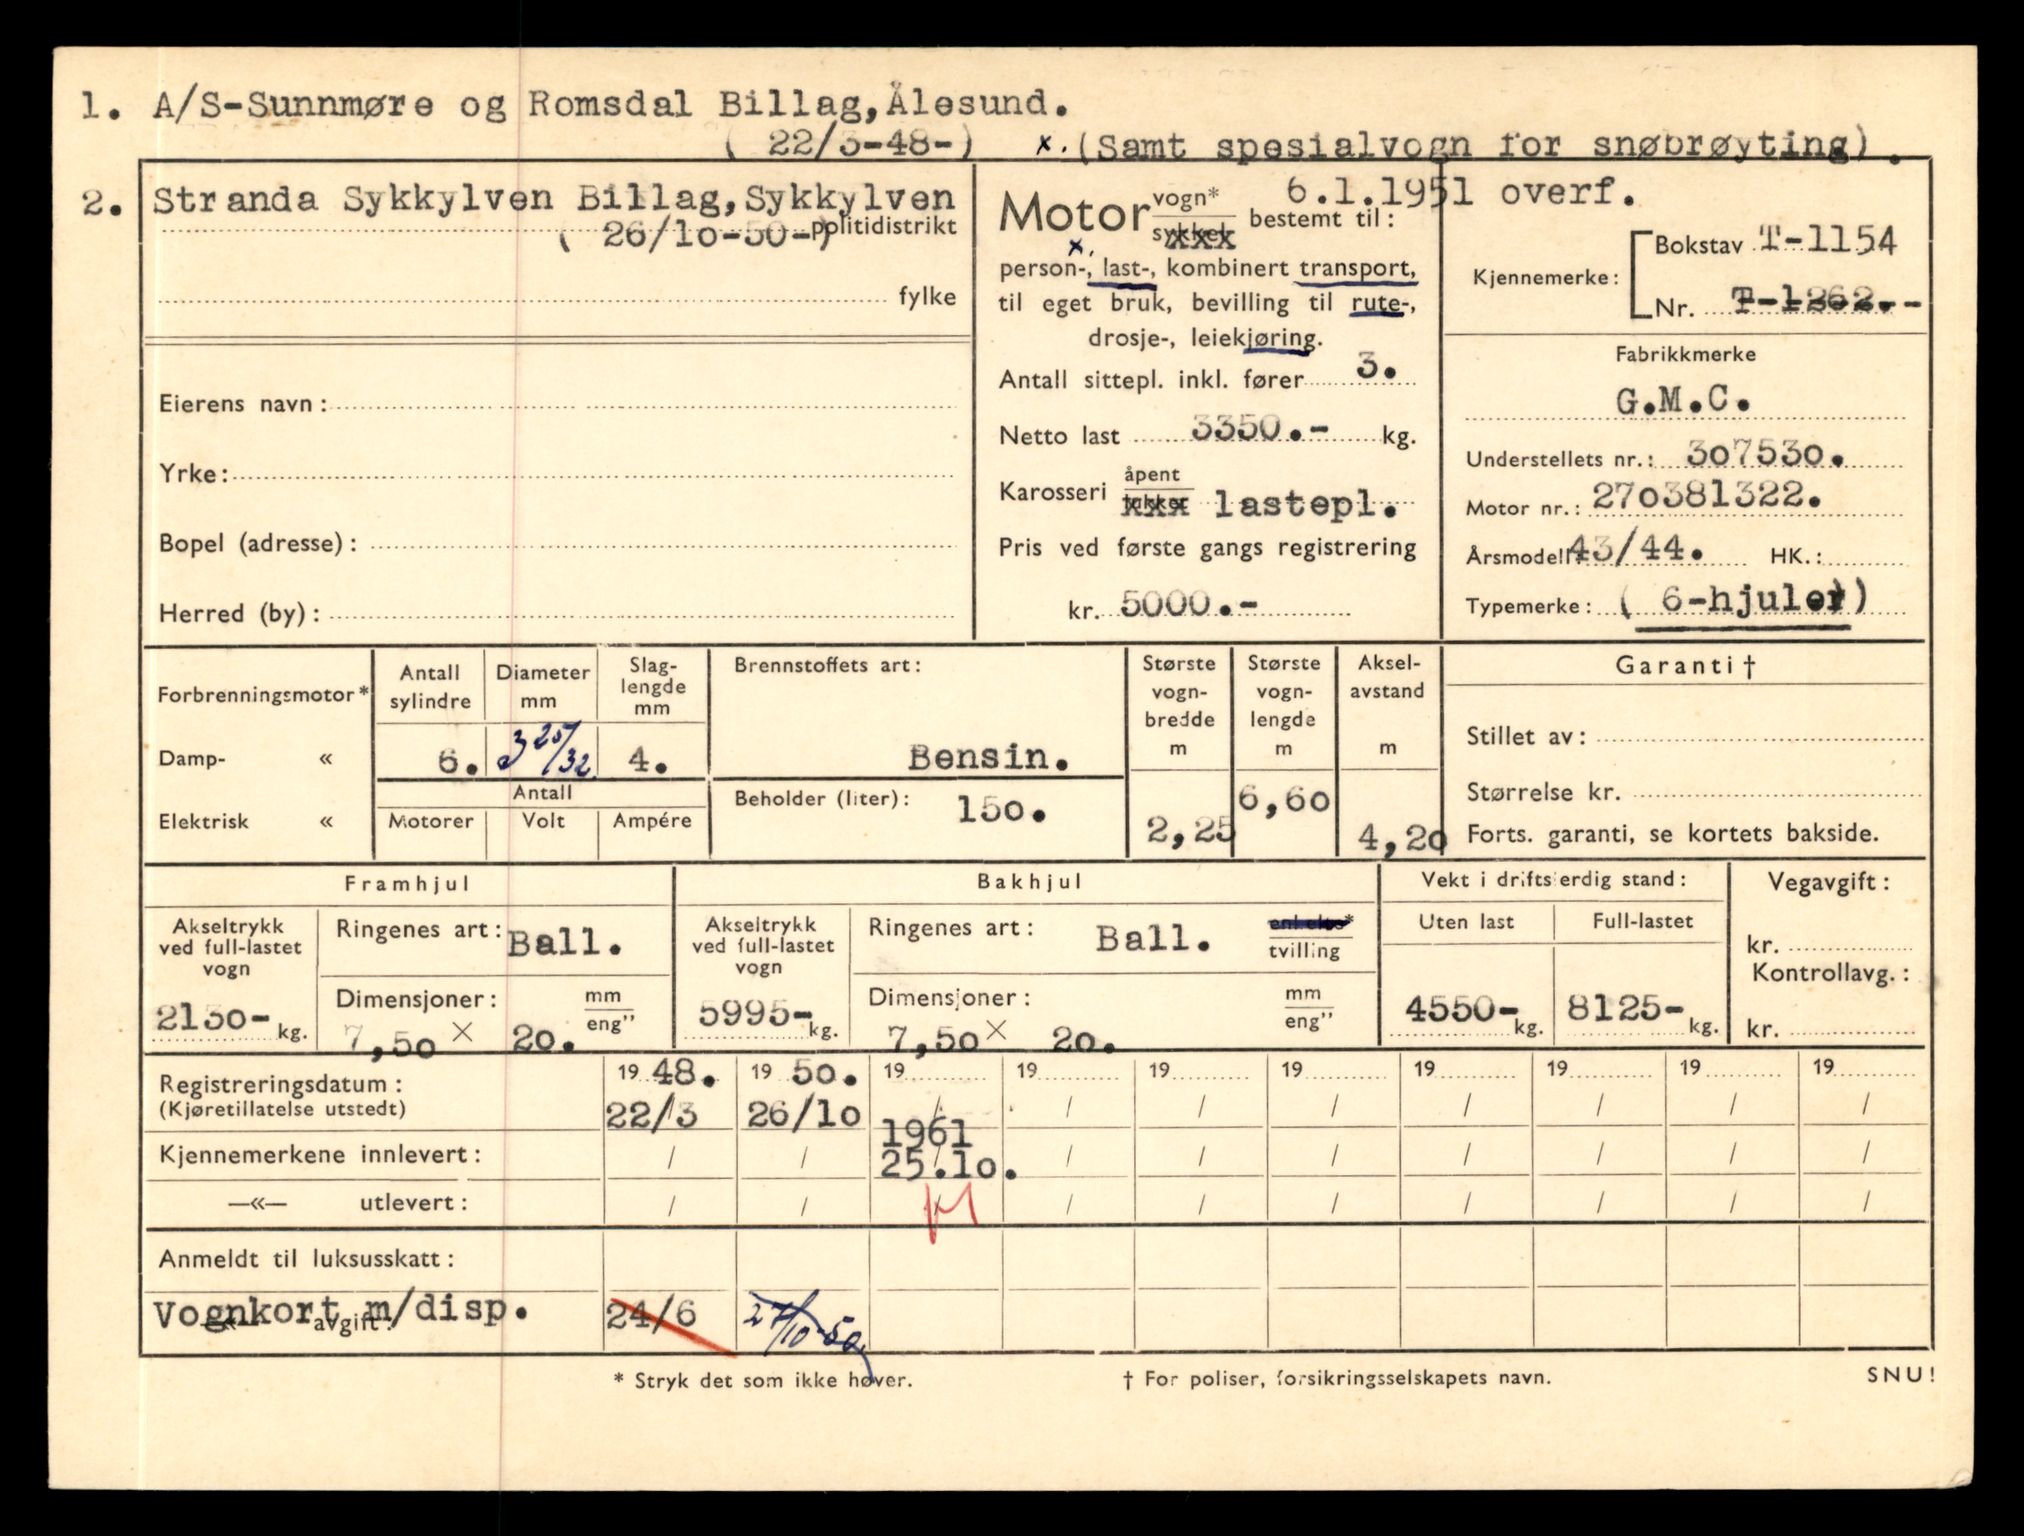 1. A/S-Sunnmøre og Romsdal Billag, Ålesund.
( 22/3-48-) x. (Samt spesialvogn for snøbrøyting).
2. Stranda Sykkylven Billag, Sykkylven
( 26/10-50-) politidistrikt
fylke
Eierens navn:
Yrke:
Bopel (adresse):
Herred (by):
6.1.1951 overf.
Motor vogn* / sykkel bestemt til:
x.
person-, last-, kombinert transport,
til eget bruk, bevilling til rute-,
drosje-, leiekjøring.
Antall sittepl. inkl. fører 3.
Netto last 3350.- kg.
Karosseri åpent / lukket xxx lastepl.
Pris ved første gangs registrering
kr. 5000.-
Kjennemerke: Bokstav T-1154
Nr. T-1262.-
Fabrikkmerke
G.M.C.
Understellets nr.: 307530.
Motor nr.: 270381322.
Årsmodell: 43/44. HK.:
Typemerke: ( 6-hjuler)
Forbrenningsmotor*
Damp- «
Elektrisk «
Antall sylindre
6.
Diameter mm
3 25/32
Slag-lengde mm
4.
Antall
Motorer Volt Ampére
Brennstoffets art:
Bensin.
Beholder (liter): 150.
Største vogn-bredde m
2,25
Største vogn-lengde m
6,60
Aksel-avstand m
4,20
Garanti †
Stillet av:
Størrelse kr.
Forts. garanti, se kortets bakside.
Framhjul
Akseltrykk ved full-lastet vogn
2130- kg.
Ringenes art: Ball.
Dimensjoner: mm / eng"
7,50 × 20.
Bakhjul
Akseltrykk ved full-lastet vogn
5995- kg.
Ringenes art: Ball. enkelte* / tvilling
Dimensjoner: mm / eng"
7,50 × 20.
Vekt i driftsferdig stand:
Uten last Full-lastet
4550- kg. 8125- kg.
Vegavgift:
kr.
Kontrollavg.:
kr.
Registreringsdatum: 19 48. 19 50. 19 19 19 19 19 19 19 19
(Kjøretillatelse utstedt) 22/3 26/10 / / / / / / / /
1961
Kjennemerkene innlevert: / / 25.10. / / / / / / /
—«— utlevert: / / / / / / / / / /
Anmeldt til luksusskatt:
—«— avgift:
Vognkort m/disp. 24/6 27/10-50
* Stryk det som ikke høver. † For poliser, forsikringsselskapets navn. SNU!